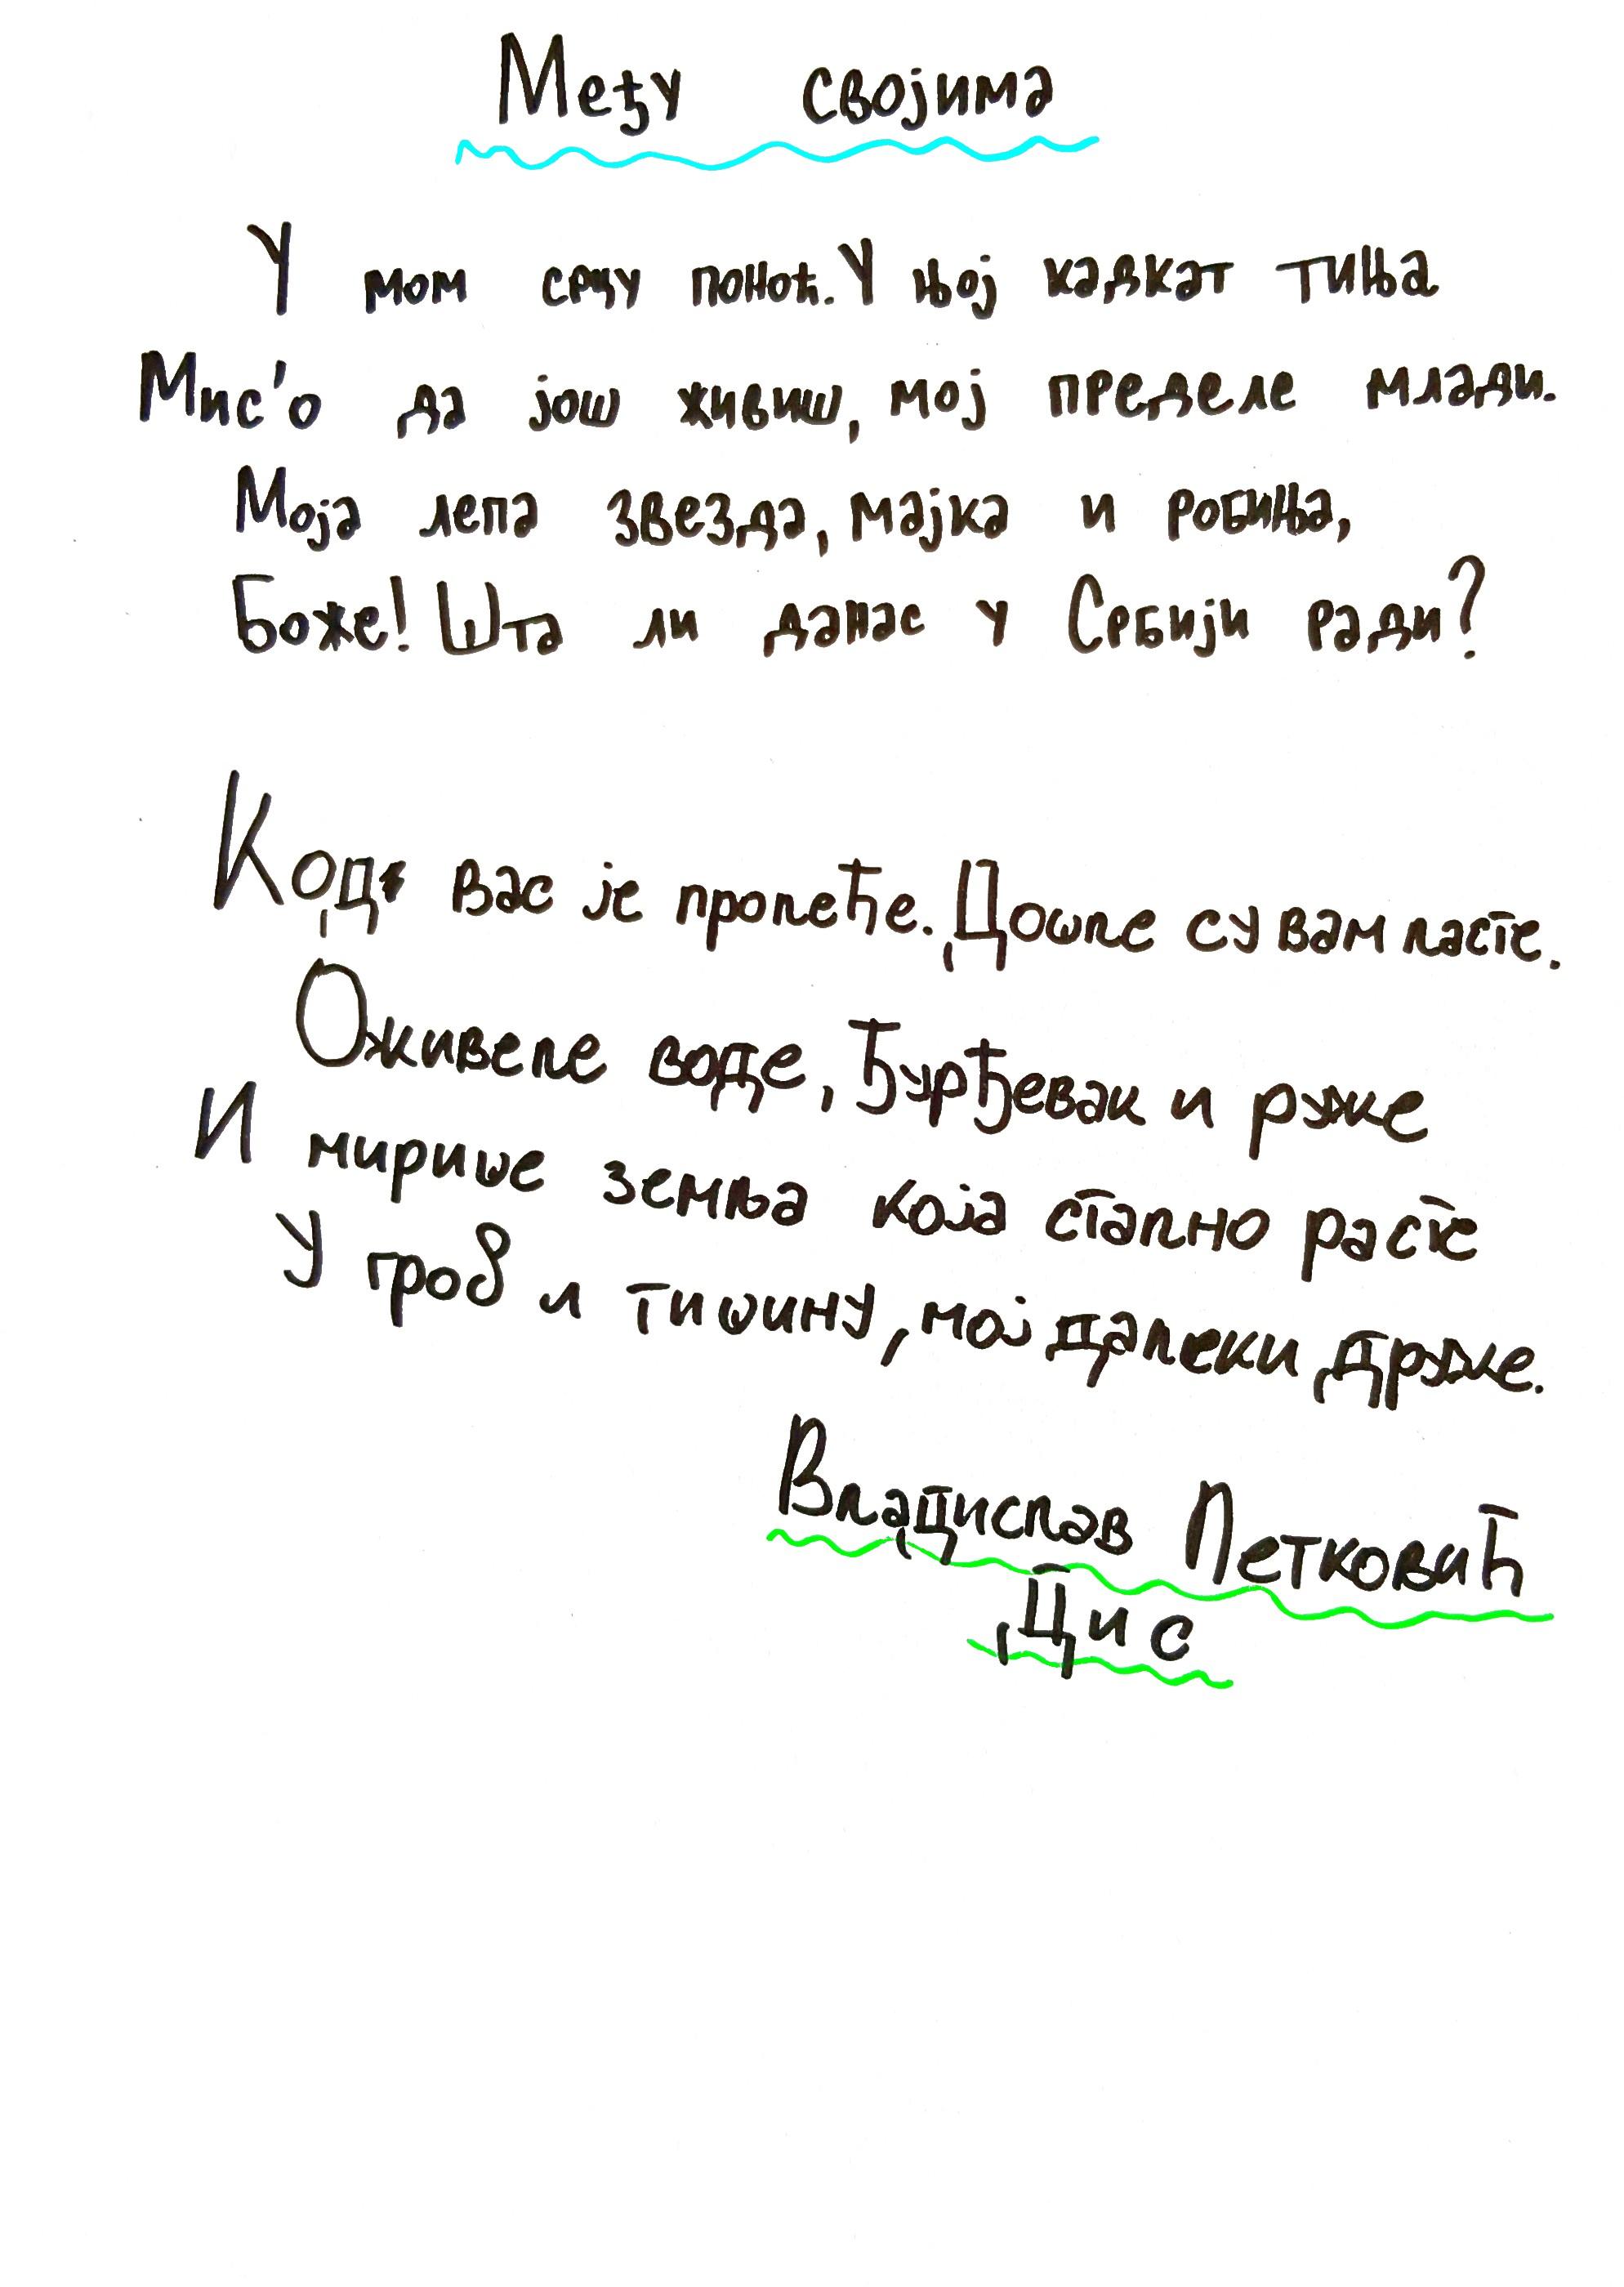 Међу својима
У мом срцу поноћ. У њој кадкат тиња
Мис'о да још живиш, мој пределе млади.
Моја лепа звезда, мајка и робиња,
Боже! Шта ли данас у Србији ради?
Код вас је пролеће. Дошле су вам ласте.
Оживеле воде, Ђурђевак и руже
И мирише земља која стално расте
У гроб и тишину, мој далеки друже.
Владислав Петковић
Дис